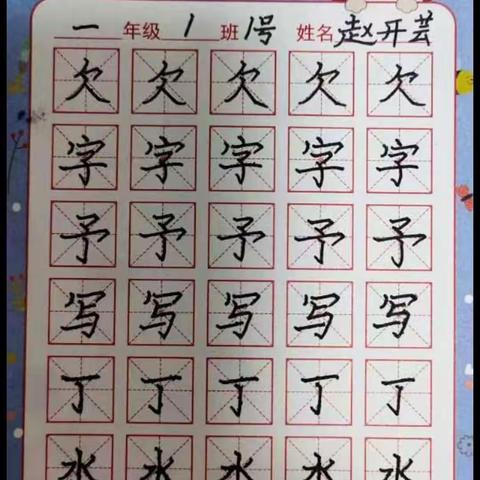 一年级1班1号 姓名赵开芸
欠欠欠欠欠
字字字字字
予予予予予
写写写写写
丁丁丁丁丁
水水水水水